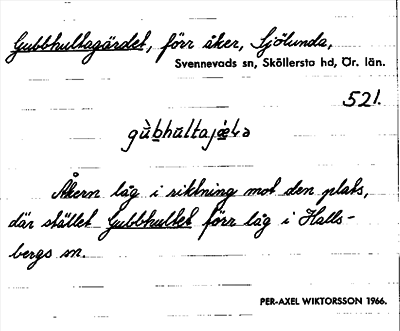 Gubbhultagärdet, förr åker, Sjölunda,
Svennevads sn, Sköllersta hd, Ör. län.
521.
Åkern låg i riktning mot den plats,
där stället Gubbhultet förr låg i Halls-
bergs sn.
PER-AXEL WIKTORSSON 1966.